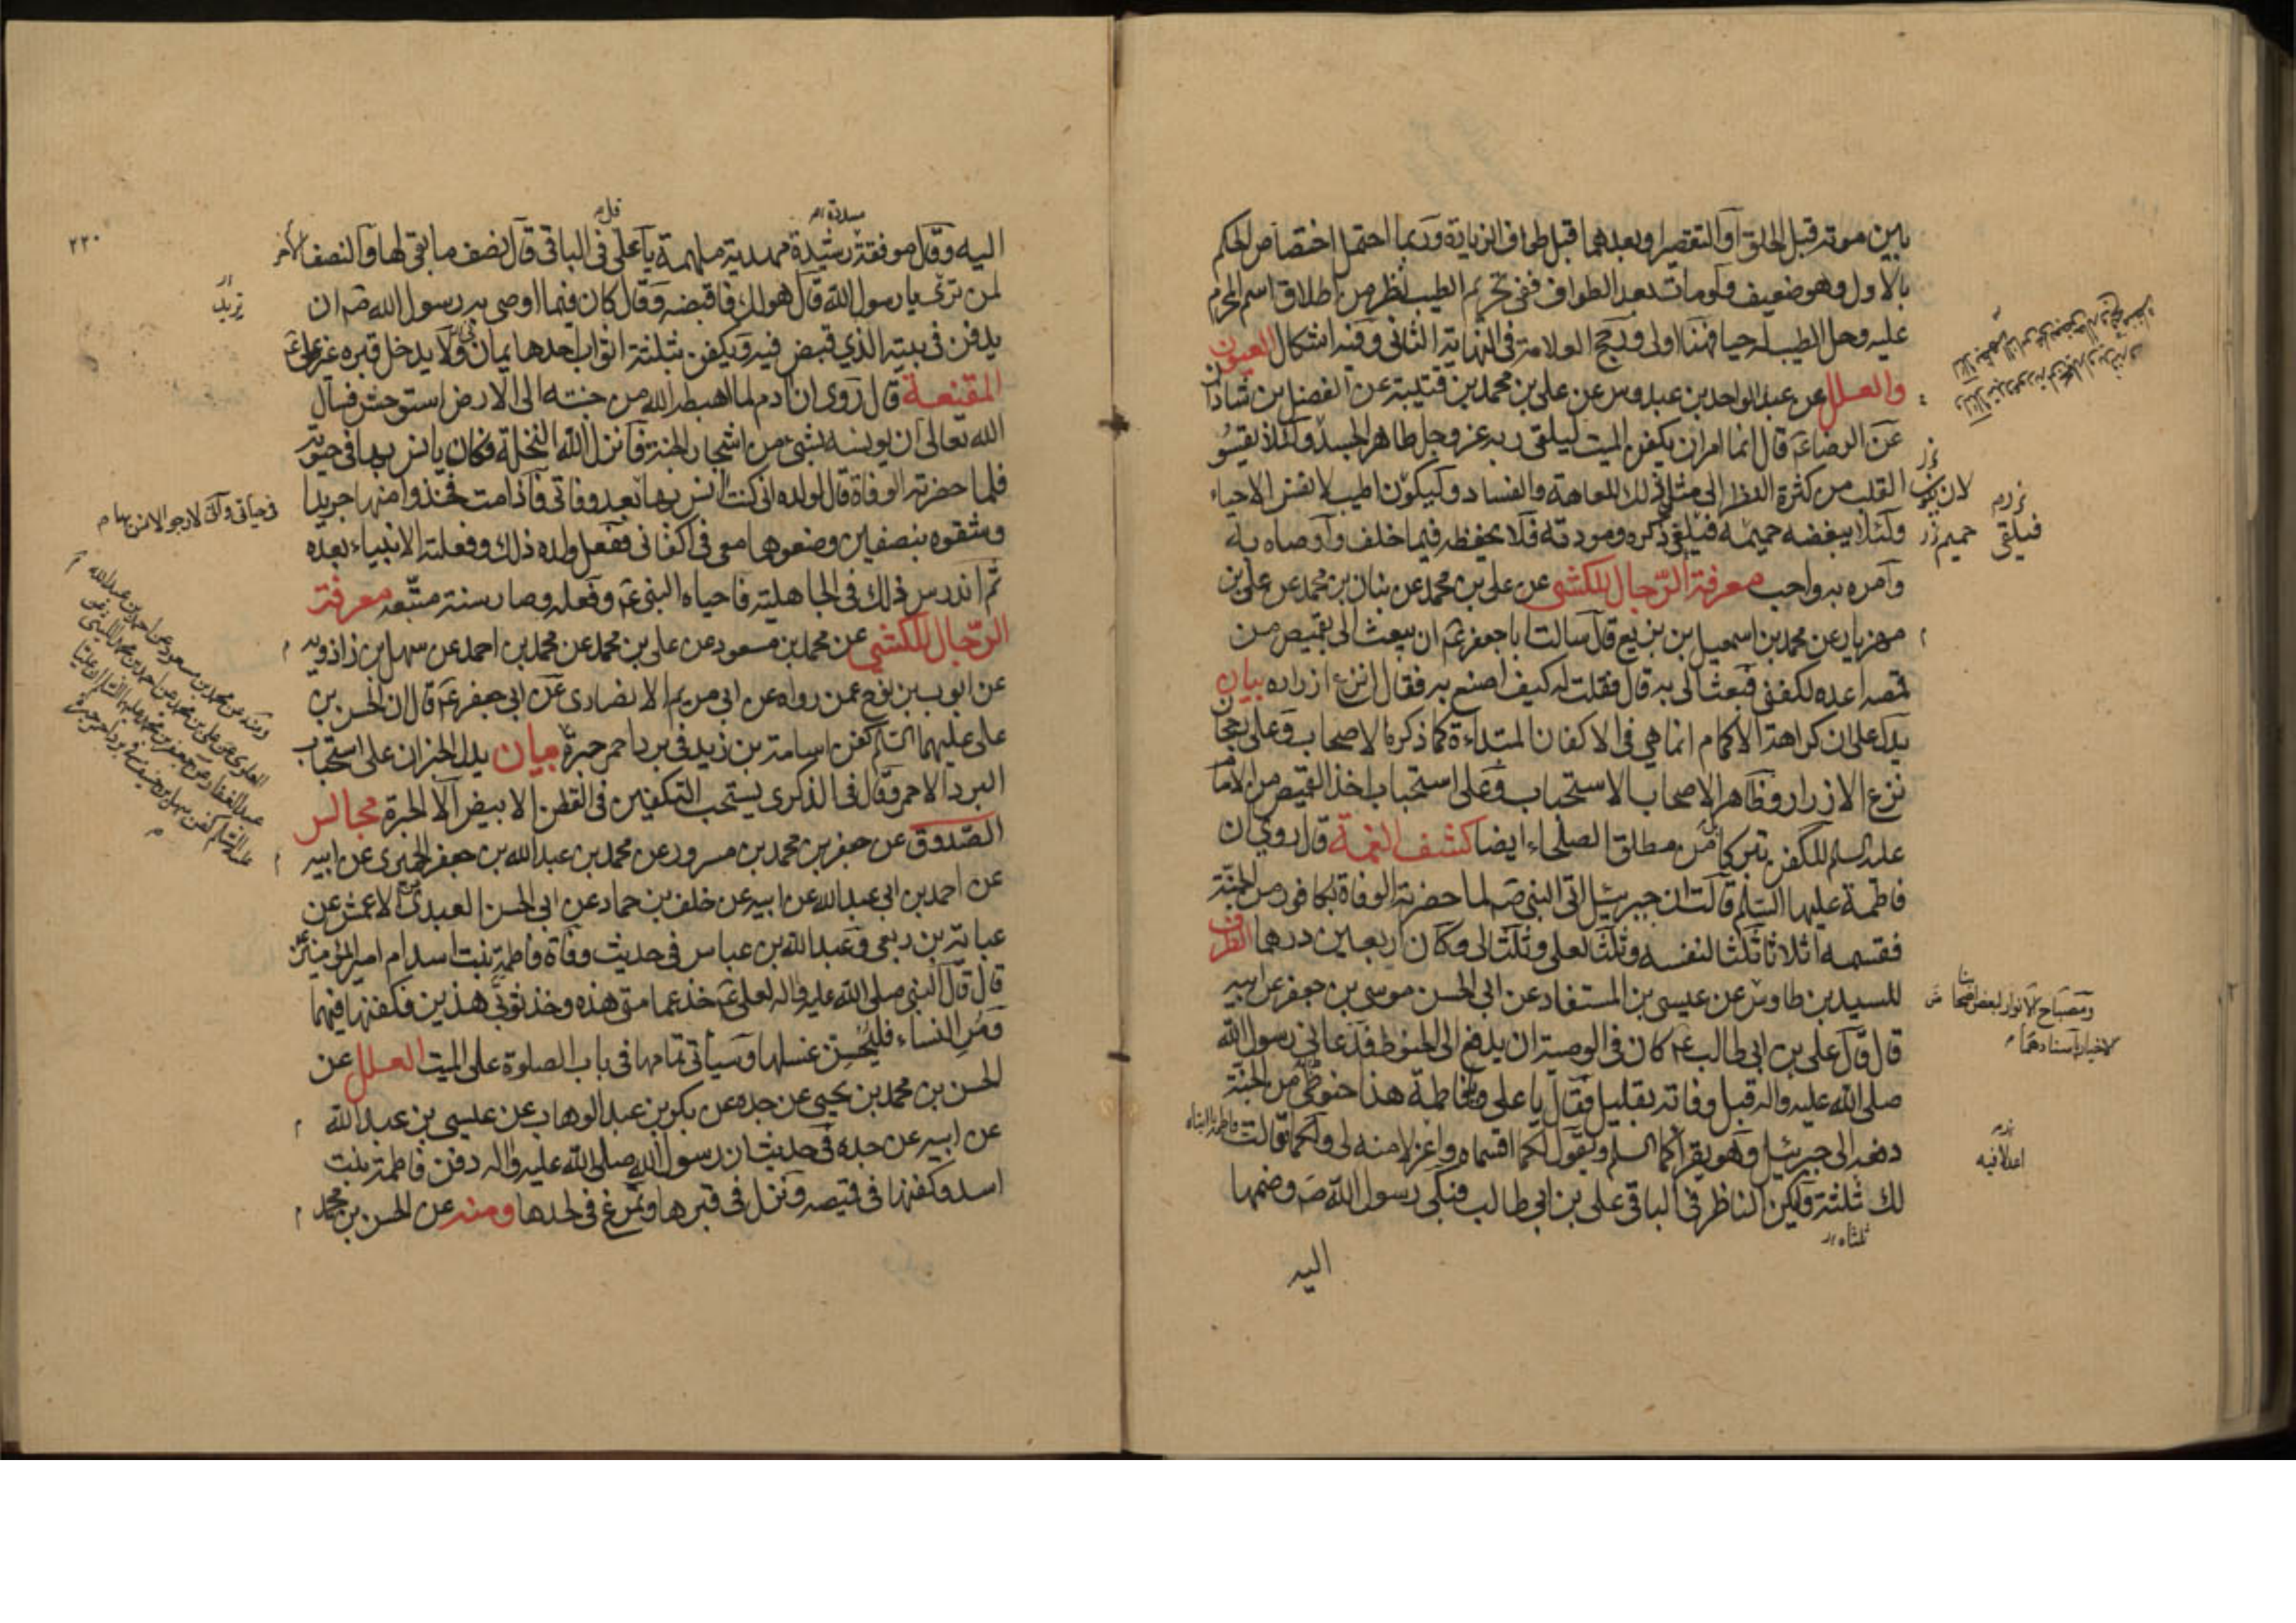 بين موته قبل الحلق او التقصير او بعدهما قبل طواف الزيارة وربما احتمل اختصاص الحكم
بالاول وهو ضعيف ولو مات بعد الطواف ففي تحريم الطيب نظر من اطلاق اسم المحرم
عليه وحل الطيب له حيا فهنا اولى ورجح العلامة في النهاية الثاني وفيه اشكال العيون
والعلل عن عبد الواحد بن عبدوس عن علي بن محمد بن قتيبة عن الفضل بن شاذان
عن الرضا ع قال انما امر ان يكفن الميت ليلقى ربه عز وجل طاهر الجسد
القلب من كثرة النظر الى مثل ذلك للعاهة والفساد وليكون اطيب لانفس الاحياء
ولئلا يبغضه حميمه فيلقى ذكره ومودته فلا يحفظه فيما خلف واوصاه به
وامره به واحب معرفة الرجال للكشي عن علي بن محمد عن بنان بن محمد عن علي بن
مهزيار عن محمد بن اسمعيل بن بزيع قال سالت ابا جعفر ع ان يبعث الي بقميص من
قمصه اعده لكفني فبعث الي به قال فقلت له كيف اصنع به فقال انزع ازراره بيان
يدل على ان كراهة الاكمام انما هي في الاكفان المبتداءة كما ذكره الاصحاب وعلى رجحان
نزع الازرار وظاهر الاصحاب الاستحباب وعلى استحباب اخذ القميص من الامام
عليه السلم للكفن تبركا بل من مطلق الصلحاء ايضا كشف الغمة قال روي ان
فاطمة عليها السلم قالت ان جبرئيل اتى النبي ص لما حضرته الوفاة بكافور من الجنة
فقسمه اثلاثا ثلثا لنفسه وثلثا لعلي وثلثا لي وكان اربعين درهما الطرف
للسيد بن طاوس عن عيسى بن المستفاد عن ابي الحسن موسى بن جعفر عن ابيه
قال قال علي بن ابي طالب ع كان في الوصية ان يدفع الي الحنوط فدعاني رسول الله
صلى الله عليه واله قبل وفاته بقليل فقال يا علي ويا فاطمة هذا حنوطي من الجنة
دفعه الي جبرئيل وهو يقرأكما السلم ويقول لكما اقسماه واعزلا منه لي ولكما فقالت
لك ثلثة وليكن الناظر في الباقي علي بن ابي طالب فبكى رسول الله ص وضمها
اليه
لان
فيلقى
حميم
ومصباح الانوار لبعض اصحابنا
الاخيار باسنادهما
اعدلا فيه
ثلثاه
٢٢٠
اليه وقال موفقة رشيدة مهدية ملهمة يا علي قل في الباقي قال نصف ما بقي لها والنصف الاخر
لمن ترى يا رسول الله قال هو لك فاقبضه وقال كان فيما اوصى به رسول الله ص ان
يدفن في بيته الذي قبض فيه ويكفن بثلثة اثواب احدها يمان ولا يدخل قبره غير علي ع
المقنعة قال روي ان ادم لما اهبطه الله من جنته الى الارض استوحش فسال
الله تعالى ان يونسه بشيء من اشجار الجنة فانزل الله النخلة فكان يانس بها في حيوته
فلما حضرته الوفاة قال لولده اني كنت انس بها بعد وفاتي فاذا مت فخذوا منها جريدا
وشقوه بنصفين وضعوها معي في اكفاني ففعل ولده ذلك وفعلته الانبياء بعده
ثم اندرس ذلك في الجاهلية فاحياه النبي ع وفعله وصار سنة متبعه معرفة
الرجال للكشي عن محمد بن مسعود عن علي بن محمد عن محمد بن احمد عن سهل بن زاذويه
عن ايوب بن نوح عمن رواه عن ابي مريم الانصاري عن ابي جعفر ع قال ان الحسن بن
علي عليهما السلم كفن اسامة بن زيد في برد احمر حبرة بيان يدل الخبران على استحباب
البرد الاحمر وقال في الذكرى يستحب التكفين في القطن الابيض الا الحبرة مجالس
الصدوق عن جعفر بن محمد بن مسرور عن محمد بن عبد الله بن جعفر الحميري عن ابيه
عن احمد بن ابي عبد الله عن ابيه عن خلف بن حماد عن ابي الحسن العبدي عن الاعمش عن
عباية بن ربعي وعبد الله بن عباس في حديث وفاة فاطمة بنت اسد ام امير المومنين ع
قال قال النبي صلى الله عليه واله لعلي ع خذ عمامتي هذه وخذ ثوبي هذين فكفنها فيهما
ومر النساء فليحسن غسلها وسيأتي تمامها في باب الصلوة على الميت العلل عن
الحسن بن محمد بن يحيى عن جده عن بكر بن عبد الوهاب عن عيسى بن عبد الله
عن ابيه عن جده في حديث ان رسول الله صلى الله عليه واله دفن فاطمة بنت
اسد وكفنها في قميصه ونزل في قبرها وتمرغ في لحدها ومنه عن الحسن بن محمد
تريد
في حياتي واني لارجو الانس بها
ومنه عن محمد بن مسعود عن احمد بن عبد الله
العلوي عن علي بن محمد عن احمد بن محمد الليثي عن
عبد الغفار عن جعفر بن محمد عليهما السلم ان عليا
عليه السلم كفن سهل بن حنيف في برد احمر حبرة